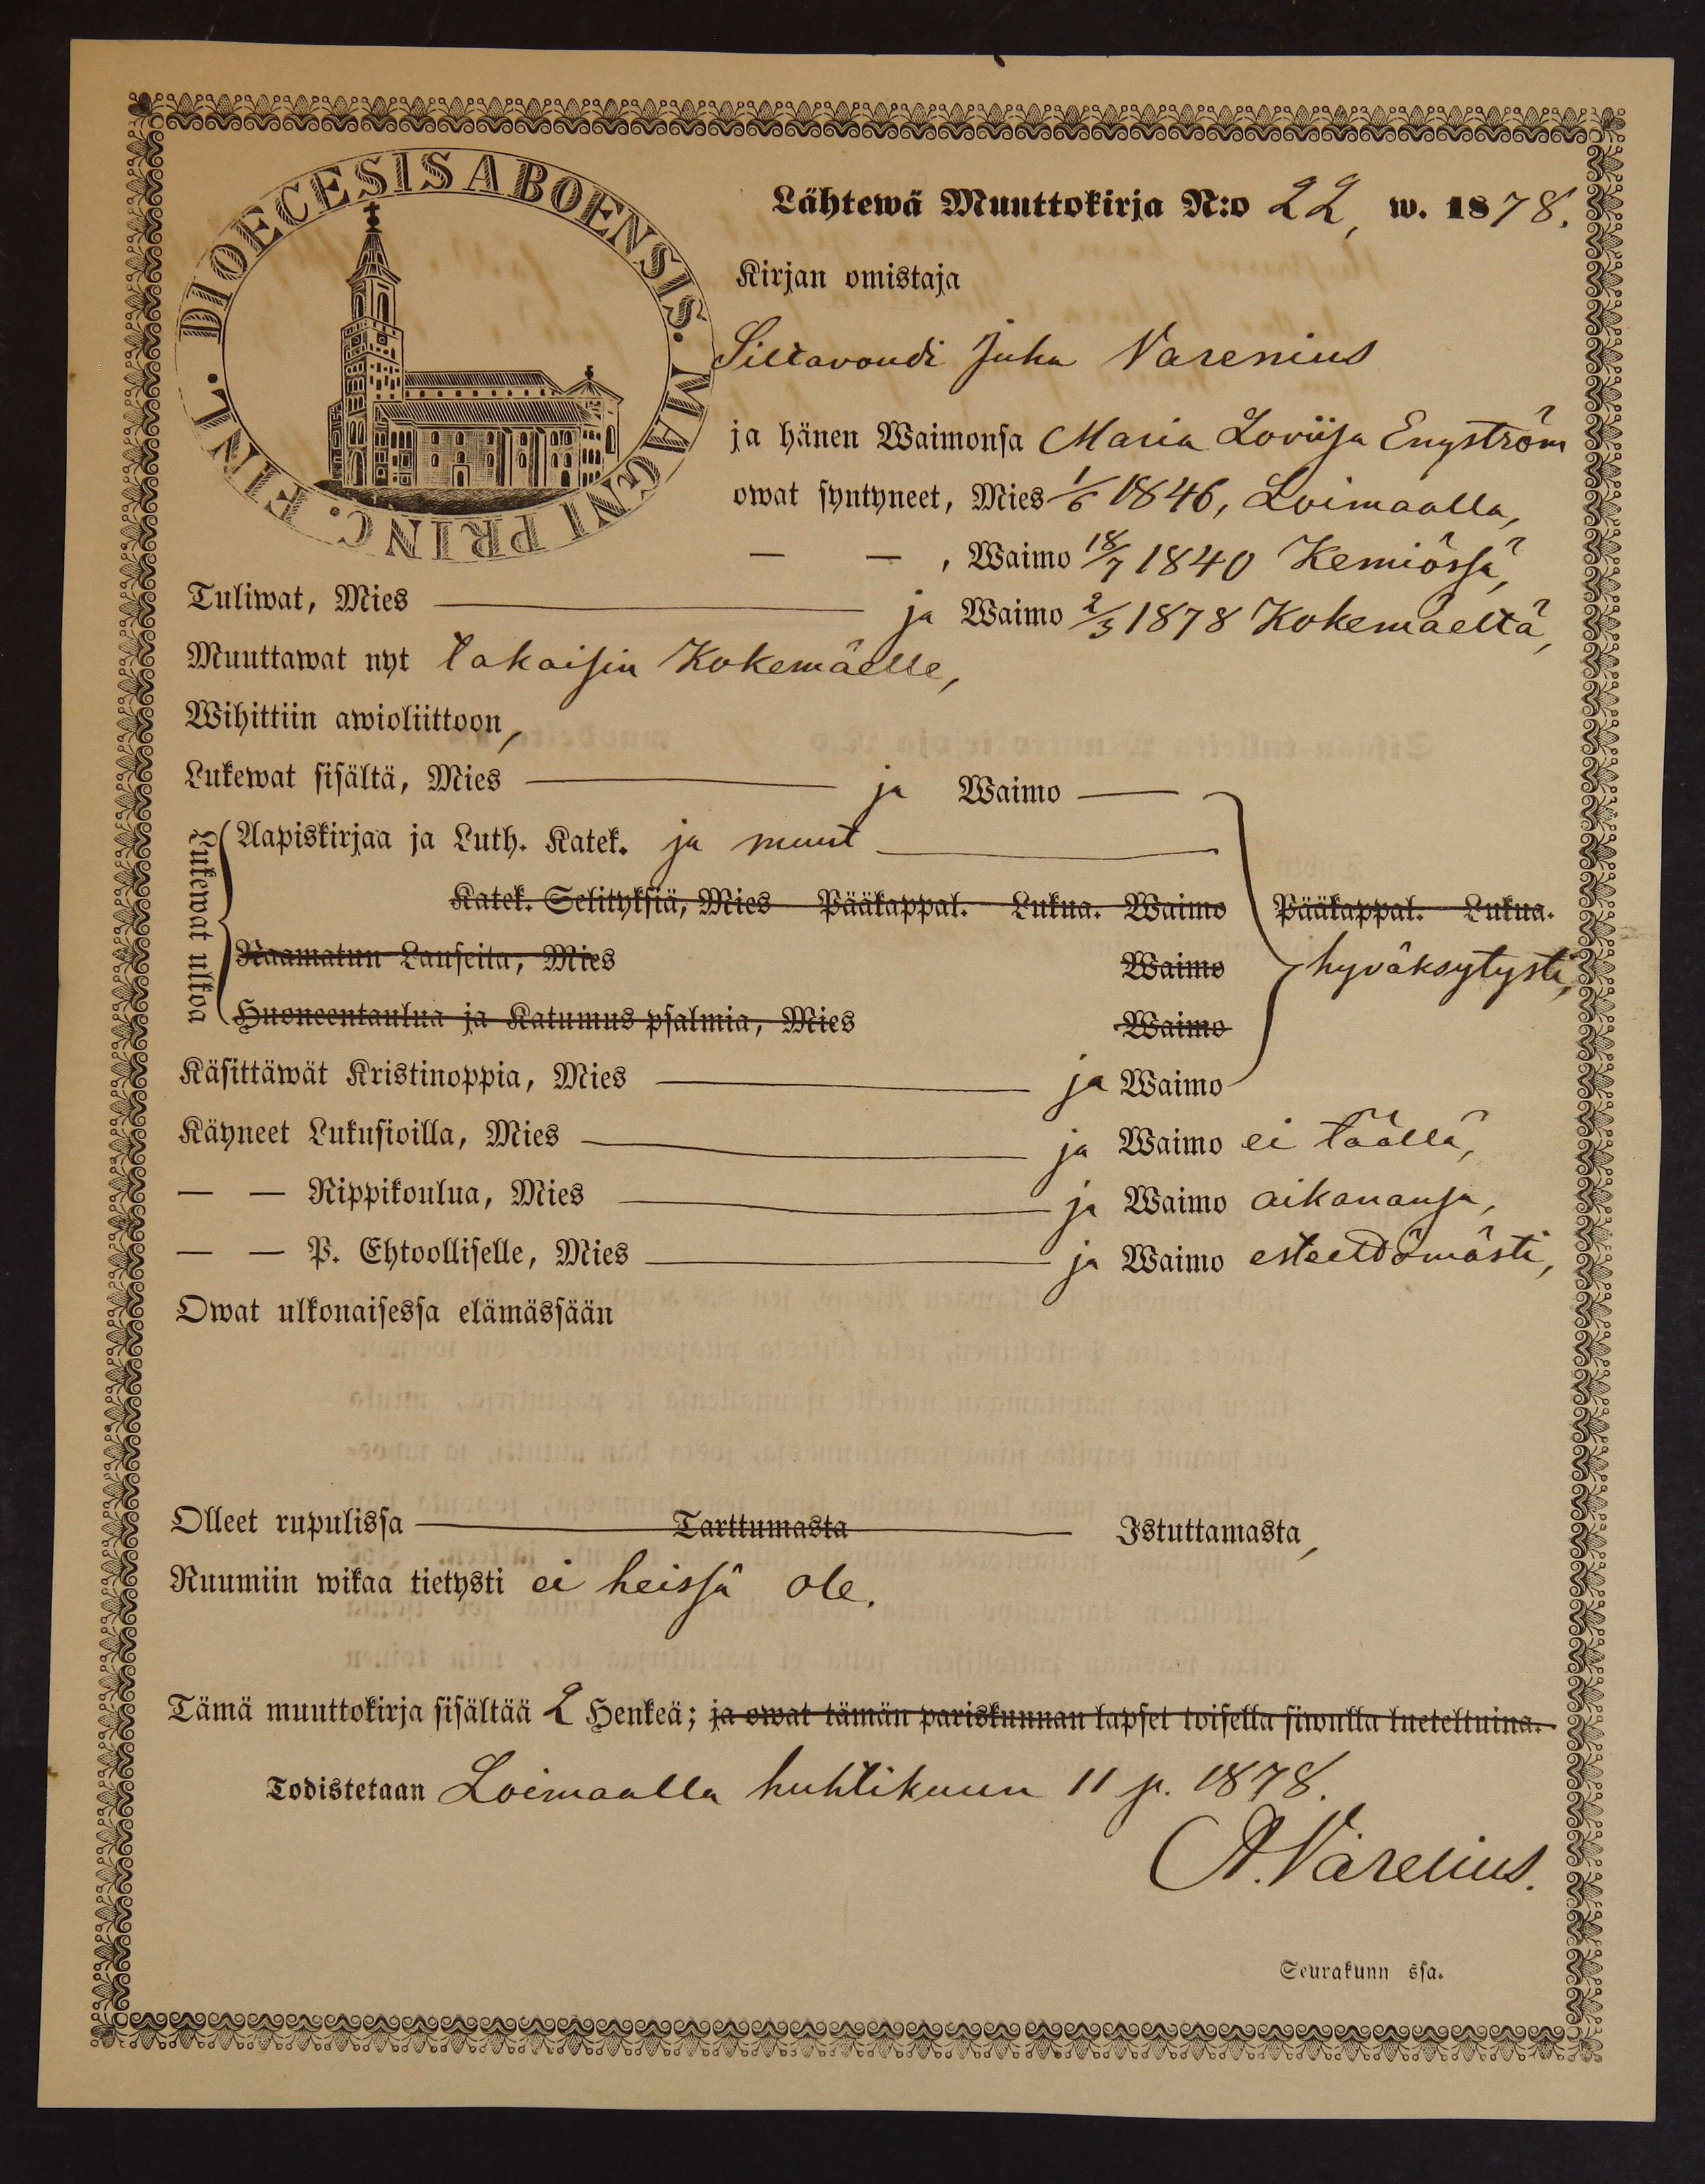 DIOECESIS ABOENSIS. MAGNI PRINC. FINL.
Lähtewä Muuttokirja N:o 22, w. 1878.
Kirjan omistaja
Siltavoudi Juha Varenius
ja hänen Waimonsa Maria Loviisa Engström
owat syntyneet, Mies 1/6 1846, Loimaalla,
— — , Waimo 18/7 1840 Kemiössä,
Tuliwat, Mies — ja Waimo 2/3 1878 Kokemäeltä,
Muuttawat nyt takaisin Kokemäelle,
Wihittiin awioliittoon,
Lukewat sisältä, Mies — ja Waimo —
Lukewat ulkoa
Aapiskirjaa ja Luth. Katek. ja muut —
Katek. Selityksiä, Mies Pääkappal. Lukua. Waimo Pääkappal. Lukua.
Raamatun Lauseita, Mies Waimo hyväksytysti,
Huoneentaulua ja Katumus psalmia, Mies Waimo
Käsittäwät Kristinoppia, Mies — ja Waimo
Käyneet Lukusioilla, Mies — ja Waimo ei täällä,
— — Rippikoulua, Mies — ja Waimo aikanansa,
— — P. Ehtoolliselle, Mies — ja Waimo esteettömästi,
Owat ulkonaisessa elämässään
Olleet rupulissa — Tarttumasta — Istuttamasta,
Ruumiin wikaa tietysti ei heissä ole.
Tämä muuttokirja sisältää 2 Henkeä; ja owat tämän pariskunnan lapset toisella siwulla lueteltuina.
Todistetaan Loimaalla huhtikuun 11 p. 1878.
A. Varelius.
Seurakunn ssa.